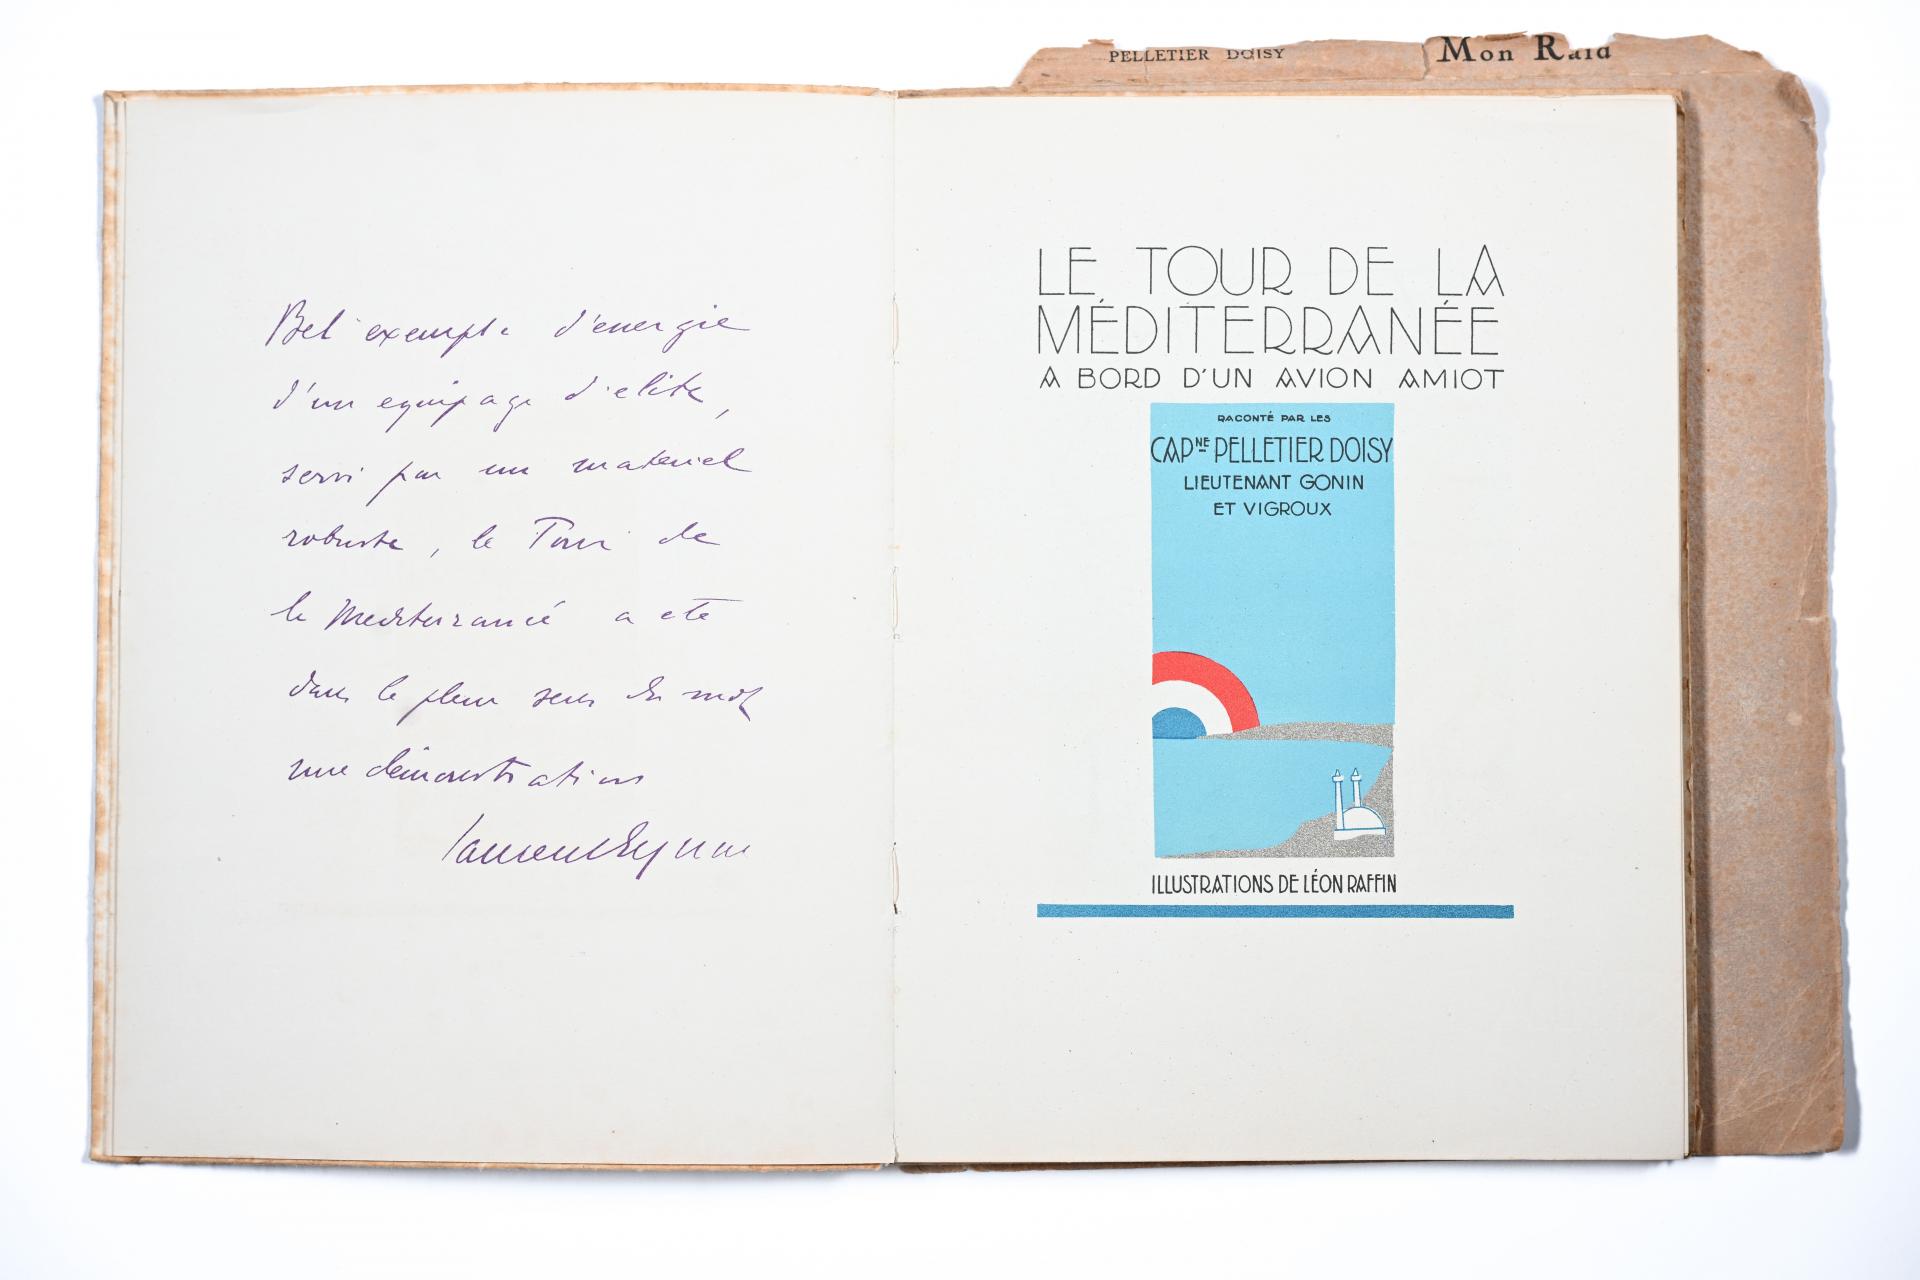 Bel exemple d'energie
d'un equipage d'elite,
servi par un materiel
robuste, le Tour de
la Mediterranée a ete
dans le plein sens du mot
une démonstration
Laurent Eynac
PELLETIER DOISY Mon Raid
LE TOUR DE LA
MÉDITERRANÉE
A BORD D'UN AVION AMIOT
RACONTÉ PAR LES
CAPNE PELLETIER DOISY
LIEUTENANT GONIN
ET VIGROUX
ILLUSTRATIONS DE LÉON RAFFIN